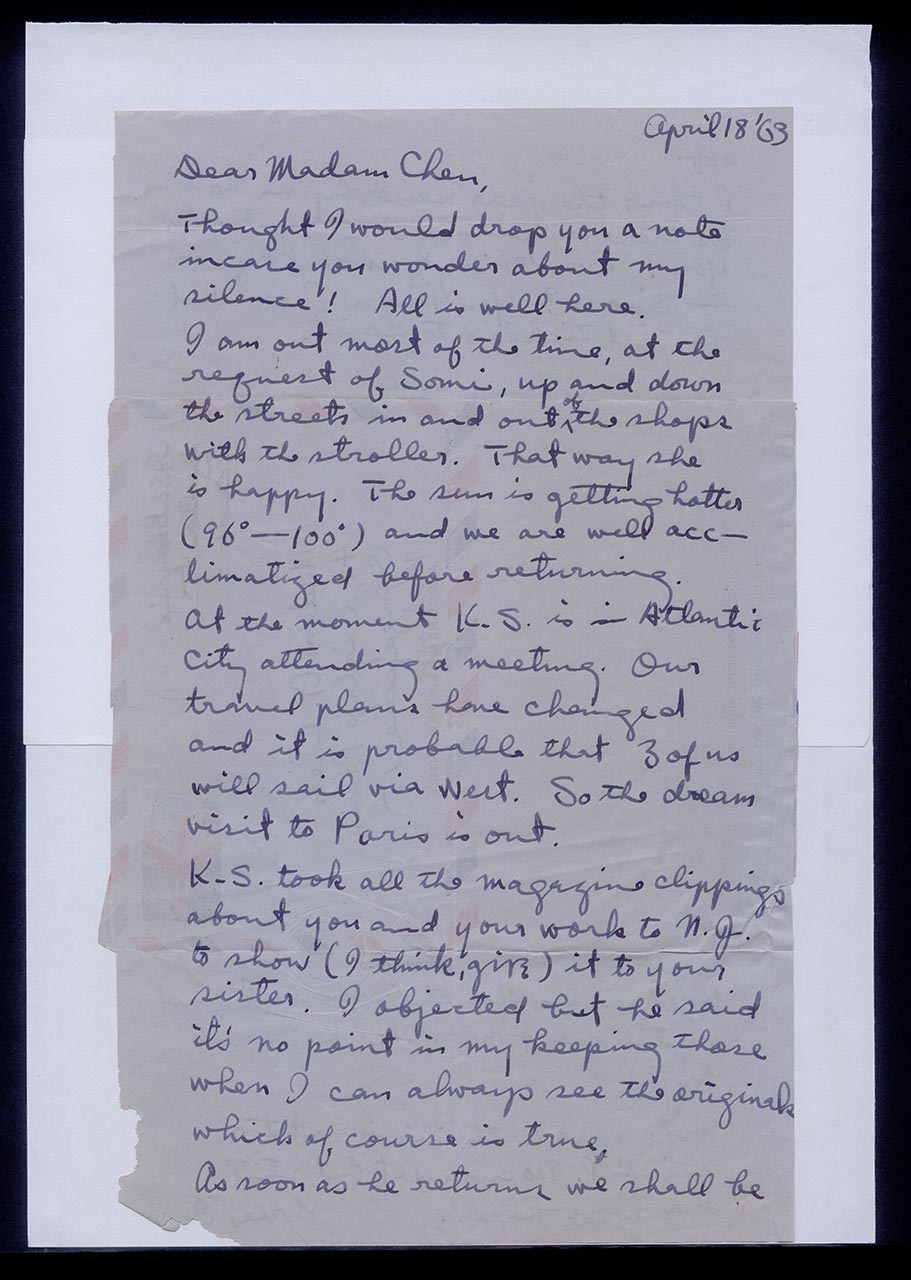 April 18 '63
Dear Madam Chen,
Thought I would drop you a note
incase you wonder about my
silence! All is well here.
I am out most of the time, at the
request of Somi, up and down
the streets in and out of the shops
with the stroller. That way she
is happy. The sun is getting hotter
(96°—100°) and we are well acc-
limatized before returning.
At the moment K.S. is in Atlantic
City attending a meeting. Our
travel plans have changed
and it is probable that 3 of us
will sail via West. So the dream
visit to Paris is out.
K-S. took all the magazine clippings
about you and your work to N.J.
to show (I think, give) it to your
sister. I objected but he said
it's no point in my keeping those
when I can always see the originals
which of course is true,
As soon as he returns we shall be